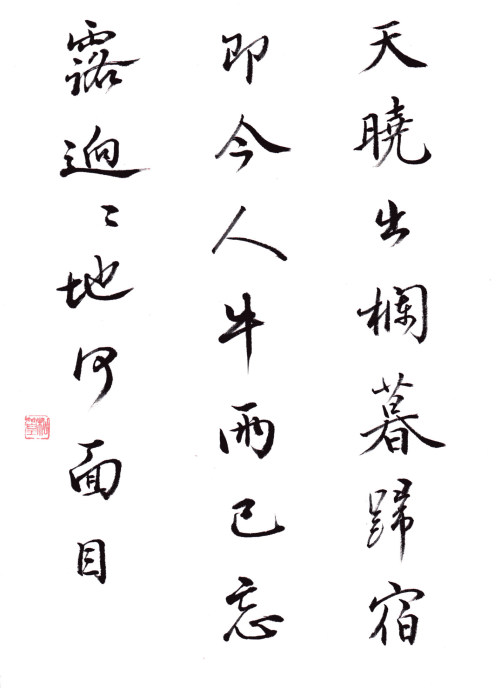 天曉出欄暮歸宿
即今人牛兩已忘
露迥〻地何面目